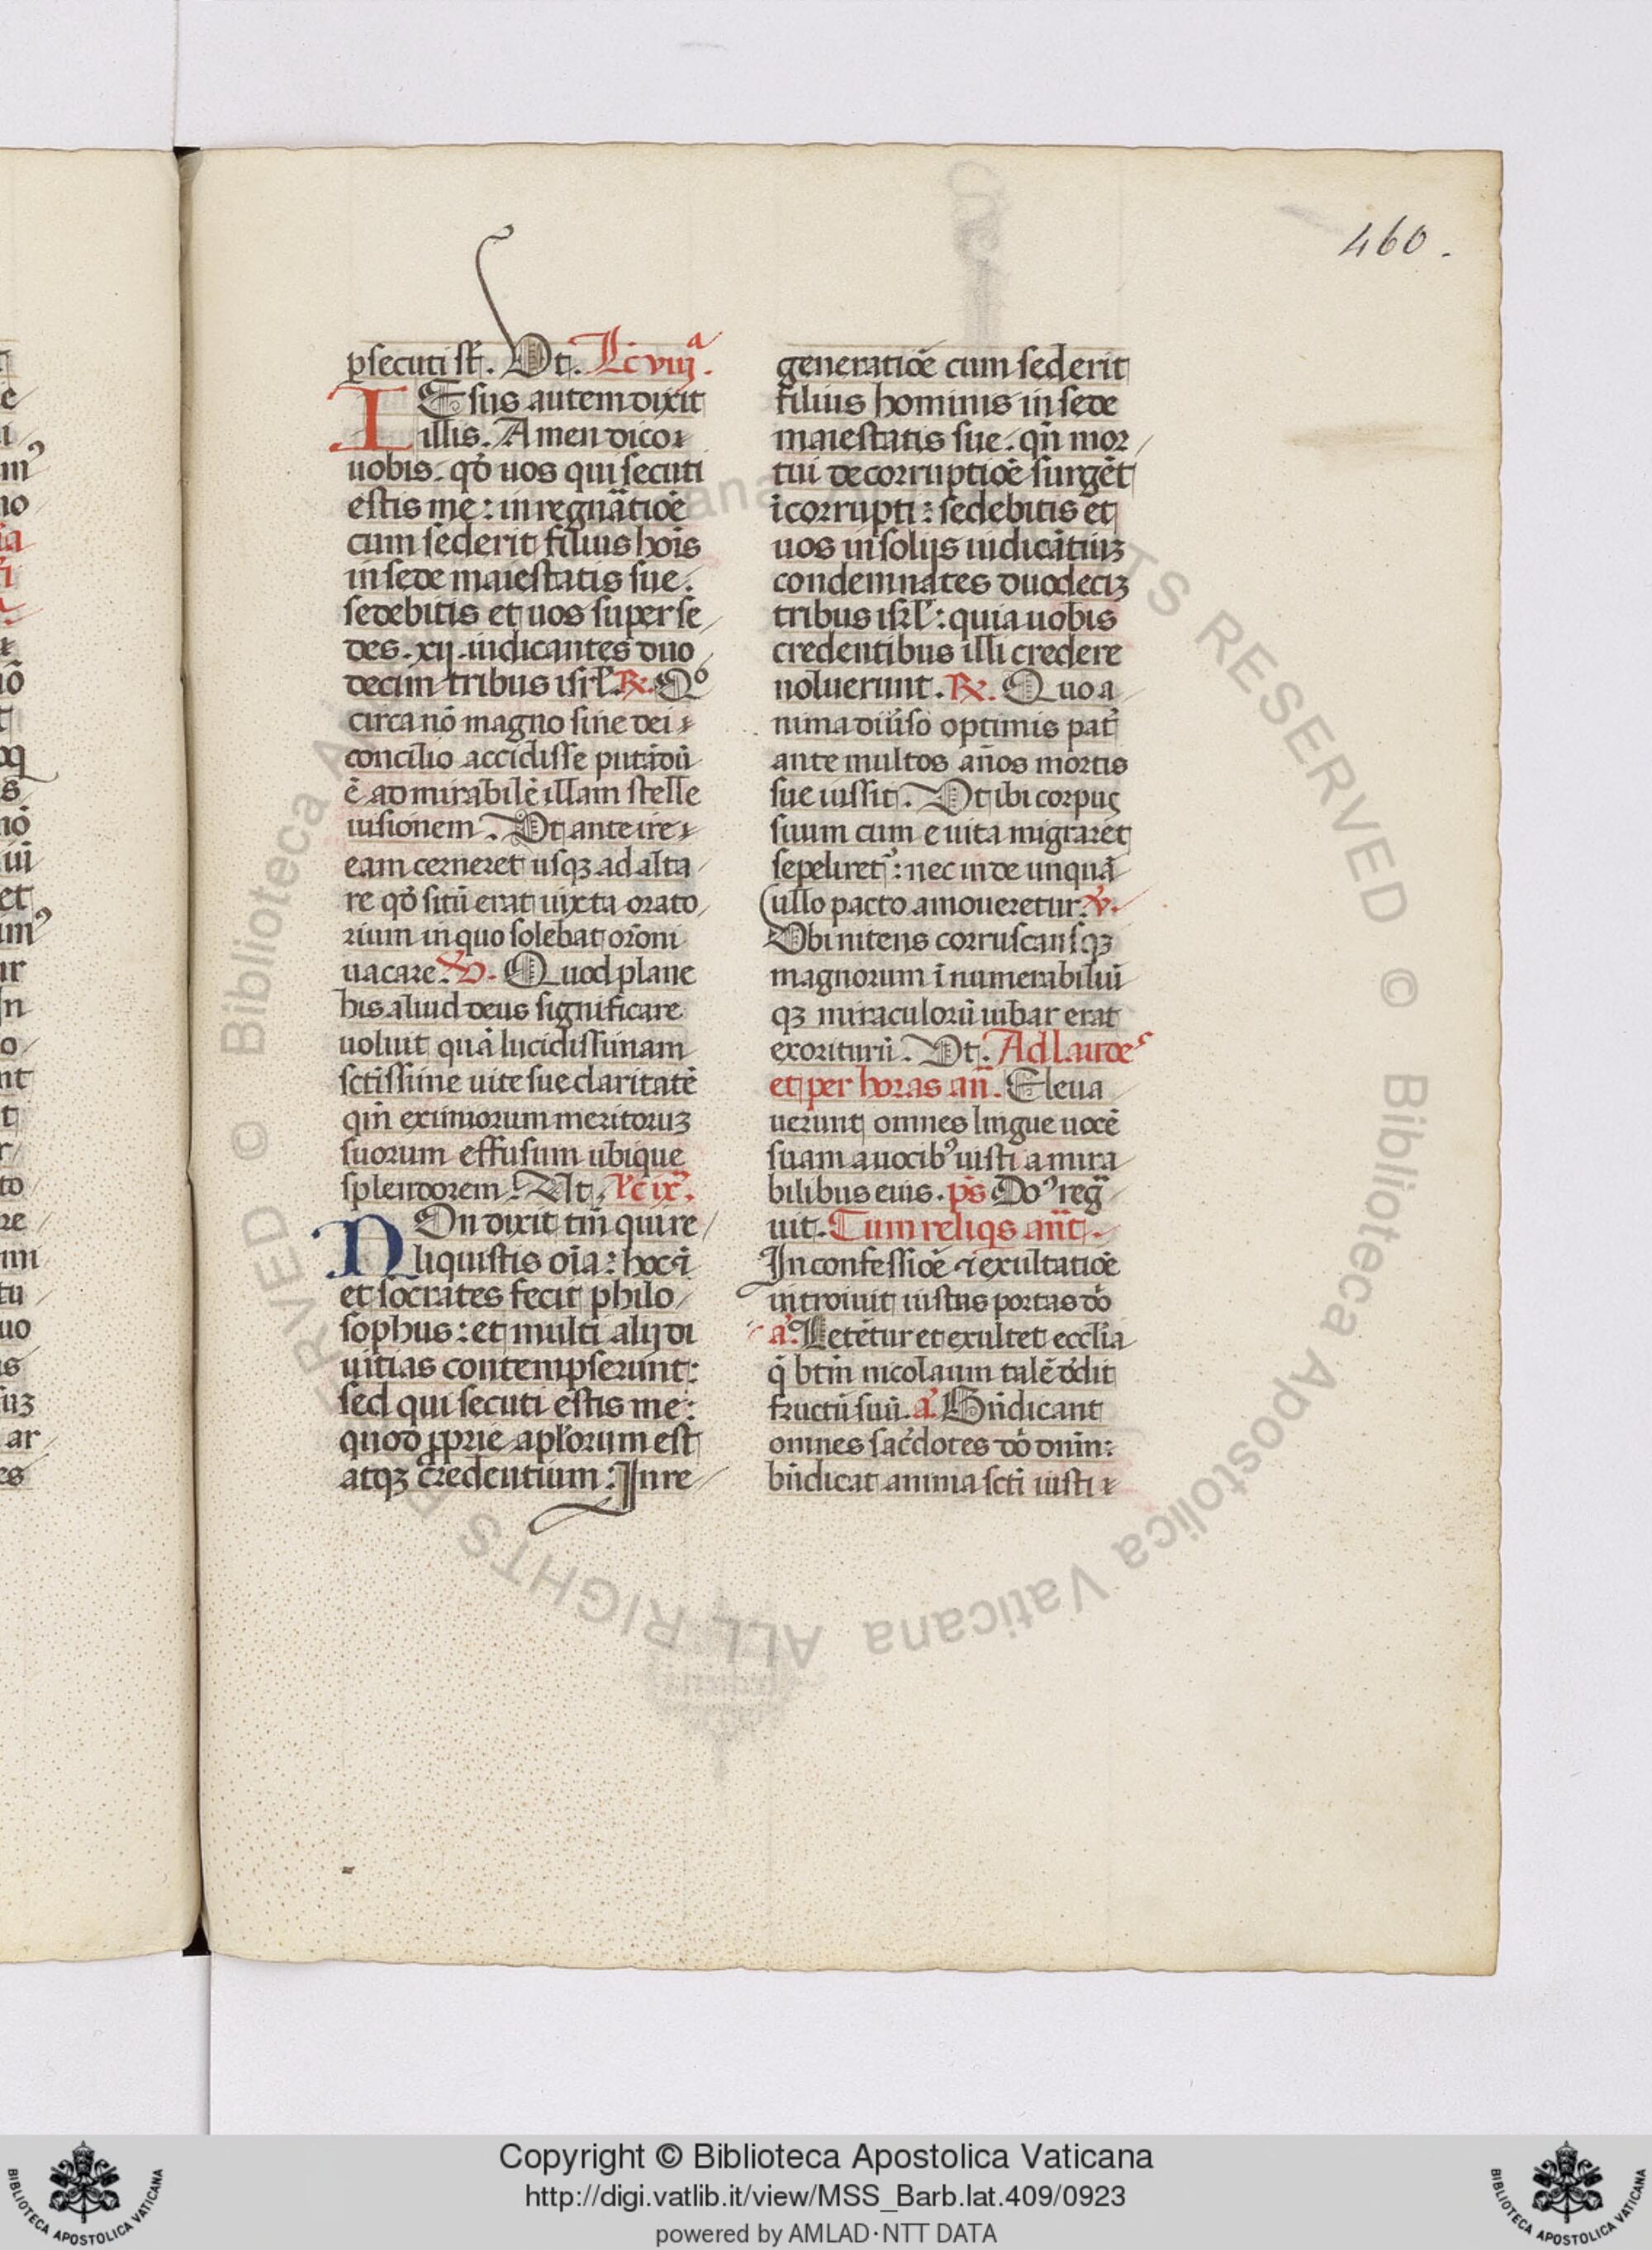 460.
ꝑsecuti st̄. Ut. Lc̄ viijᵃ.
IEsus autem dixit
illis. Amen dico
uobis. qď uos qui secuti
estis me: in regnãtiōe
cum sederit filius hoīs
in sede maiestatis sue.
sedebitis et uos super se
des. xij. iudicantes duo
decim tribus isrl̄. ℟. Qº
circa nō magno sine dei
concilio accidisse putādū
ē admirabilē illam stelle
uisionem. Ut ante ire
eam cerneret usqꝫ ad alta
re qď sitū erat iuxta orato
rium in quo solebat orōni
uacare. ℣. Quod plane
his aliud deus significare
uoluit quā lucidissimam
sctissime uite sue claritatē
qm̄ eximiorum meritoruꝫ
suorum effusum ubique
splendorem. Ut. Lc̄ ixᵃ.
NOn dixit tm̄ qui re
liquistis oīa: hoc .n.
et socrates fecit philo
sophus: et multi alij di
uitias contempserunt:
sed qui secuti estis me:
quod ꝓprie apl'orum est
atqꝫ credentium: In re
generatiōe cum sederit
filius hominis in sede
maiestatis sue. qn̄ mor
tui de corruptiōe surgēt
īcorrupti: sedebitis et
uos in solijs iudicātiuꝫ
condemnātes duodeciꝫ
tribus isrl̄: quia uobis
credentibus illi credere
noluerunt. ℟. Quo a
nima diū'so optimis pat'
ante multos an̄os mortis
sue iussit. Ut ibi corpus
suum cum e uita migraret
sepeliret': nec inde unquā
ullo pacto amoueretur. ℣.
Ubi nitens corruscansqꝫ
magnorum īnumerabiliū
qꝫ miraculorū iubar erat
exoriturū. Ut. Ad laudes
et per horas an̄. Eleua
uerunt omnes lingue uocē
suam a uocibꝰ iusti a mira
bilibus eius. ps̄ Doꝰ reg̃
uit. Cum reliqs an̄t.
In confessiōe ⁊ exultatiōe
introiuit iustus portas dō
a'. Letētur et exultet ecclīa
q̇ btm̄ nicolaum talē d'dit
fructū suū. a'. Bn̄dicant
omnes sac'dotes dō dnm̄:
bn̄dicat anima scti iusti ⁊
Copyright © Biblioteca Apostolica Vaticana
http://digi.vatlib.it/view/MSS_Barb.lat.409/0923
powered by AMLAD·NTT DATA
BIBLIOTECA APOSTOLICA VATICANA
BIBLIOTECA APOSTOLICA VATICANA